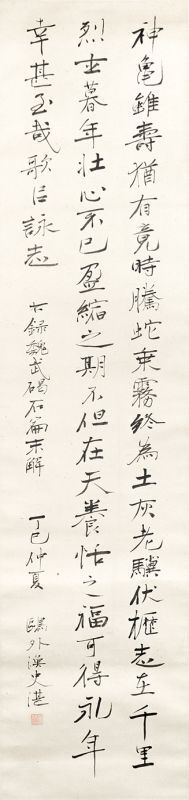 神龜雖壽猶有竟時騰蛇乘霧終為土灰老驥伏櫪志在千里
烈士暮年壯心不已盈縮之期不但在天養恬之福可得永年
幸甚至哉歌以詠志
右録魏武碣石篇末解
丁巳仲夏
鷗外漁史湛